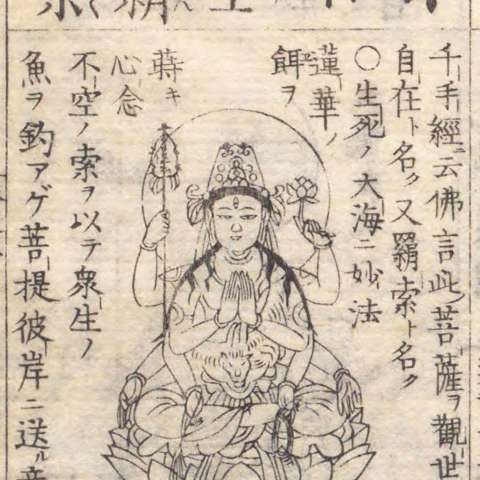 千手經ニ云佛言此菩薩ヲ觀世
自在ト名ク又羂索ト名ク
〇生死ノ大海ニ妙法
蓮華ノ
餌ヲ
蒔キ
心念
不空ノ索ヲ以テ衆生ノ
魚ヲ釣アゲ菩提彼岸ニ送ル